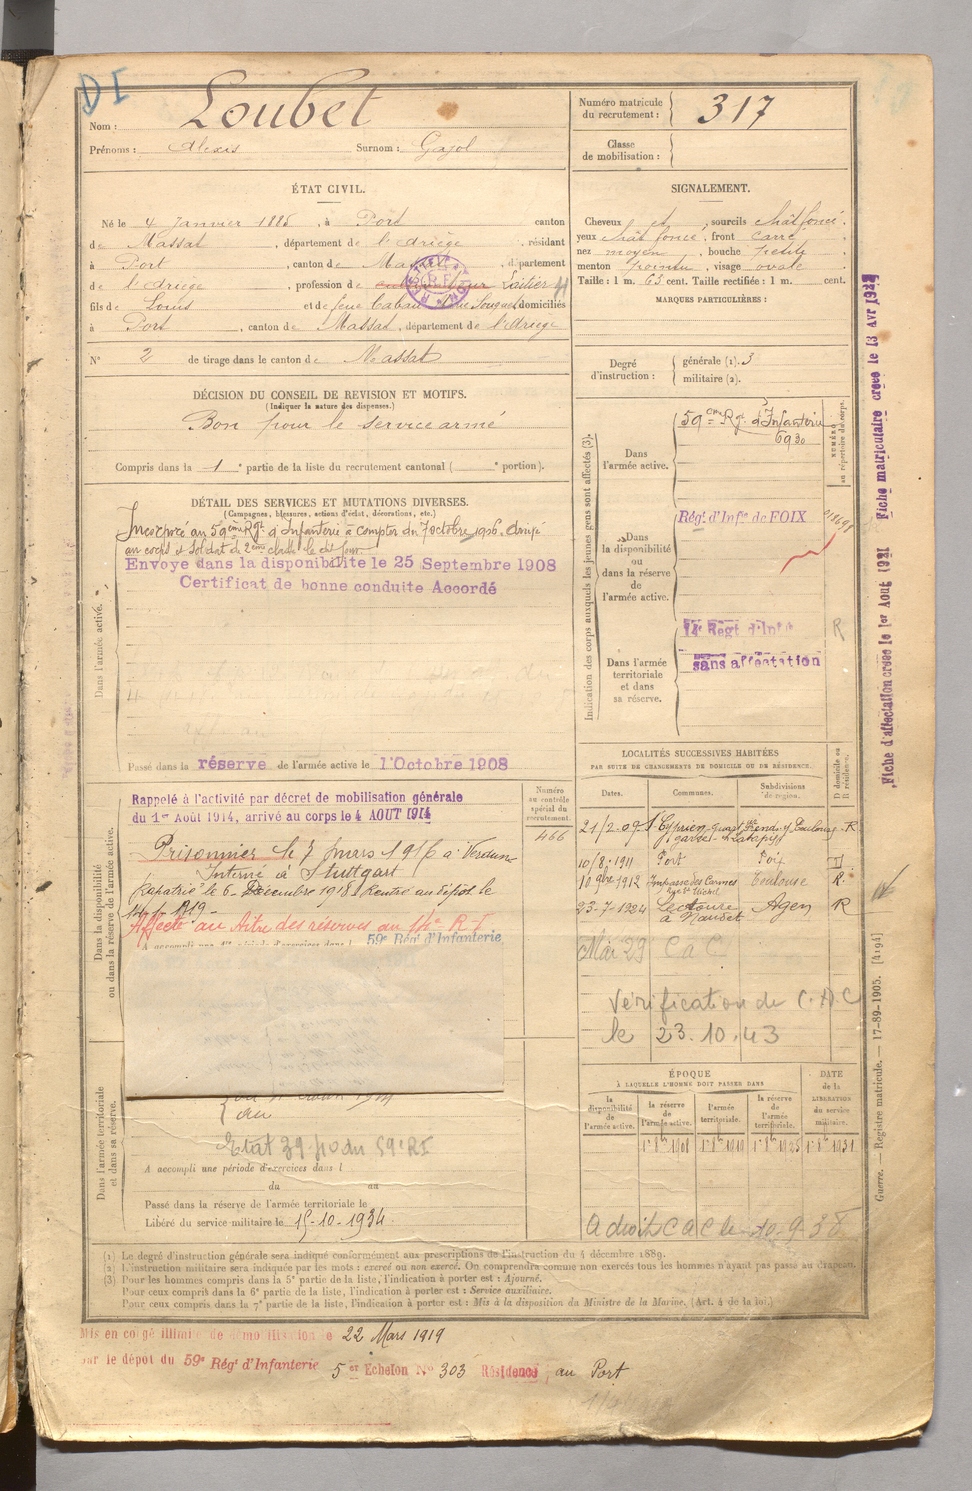 DI
Nom : Loubet
Prénoms : Alexis Surnom : Gajol
Numéro matricule du recrutement : 317
Classe de mobilisation :
ÉTAT CIVIL.
Né le 4 Janvier 1885, à Port canton
de Massat, département de l'Ariège, résidant
à Port, canton de Massat, département
de l'Ariège, profession de cultivateur Laitier
fils de Louis et de feue Cabau domiciliés
à Port, canton de Massat, département de l'Ariège
N° 2 de tirage dans le canton de Massat
SIGNALEMENT.
Cheveux et, sourcils chât foncé.
yeux chât foncé, front carré
nez moyen, bouche petite
menton pointu, visage ovale
Taille : 1 m. 65 cent. Taille rectifiée : 1 m. cent.
MARQUES PARTICULIÈRES :
Degré d'instruction :
générale (1). 3
militaire (2).
DÉCISION DU CONSEIL DE REVISION ET MOTIFS.
(Indiquer la nature des dispenses.)
Bon pour le service armé
Compris dans la 1e partie de la liste du recrutement cantonal ( e portion).
DÉTAIL DES SERVICES ET MUTATIONS DIVERSES.
(Campagnes, blessures, actions d'éclat, décorations, etc.)
Dans l'armée active.
Incorporé au 59ème Rgt d'Infanterie à compter du 7 octobre 1906. Arrivé
au corps et soldat de 2ème classe le dit jour
Envoyé dans la disponibilité le 25 Septembre 1908
Certificat de bonne conduite Accordé
Passé dans la réserve de l'armée active le 1 Octobre 1908
Indication des corps auxquels les jeunes gens sont affectés (3).
NUMÉRO au répertoire du corps.
Dans l'armée active.
59ème Rgt d'Infanterie
6930
Dans la disponibilité ou dans la réserve de l'armée active.
Régt d'Infie de FOIX
Dans l'armée territoriale et dans sa réserve.
14e Regt d'Infie
R
sans affectation
Fiche d'affectation créée le 1er Aout 1921 Fiche matriculaire créée le 13 Avr 1922
Dans la disponibilité ou dans la réserve de l'armée active.
Numéro au contrôle spécial du recrutement.
466
Rappelé à l'activité par décret de mobilisation générale
du 1er Août 1914, arrivé au corps le 4 AOUT 1914
Prisonnier le 7 mars 1916 à Verdun
Interné à Stuttgart
Rapatrié le 6 Décembre 1918. Rentré au dépôt le
Affecté au titre des réserves au 14e R I
59e Régt d'Infanterie
LOCALITÉS SUCCESSIVES HABITÉES
PAR SUITE DE CHANGEMENTS DE DOMICILE OU DE RÉSIDENCE.
Dates. Communes. Subdivisions de région. D domicile ou R résidence.
21/2.09 St Cyprien Toulouse R
10/8.1911 Port Foix D
10 9bre 1912 Impasse des Carmes Toulouse R.
Rue St Michel
23-7-1924 Lectoure Agen R
à Naudet
Mai 29 CaC
Vérification du C.A.C
le 23.10.43
Dans l'armée territoriale et dans sa réserve.
du
Etat 39-fo du 59e RI
A accompli une période d'exercices dans l
du au
Passé dans la réserve de l'armée territoriale le
Libéré du service militaire le 15-10-1934.
ÉPOQUE
À LAQUELLE L'HOMME DOIT PASSER DANS
DATE de la LIBÉRATION du service militaire.
la disponibilité de l'armée active.
la réserve de l'armée active.
l'armée territoriale.
la réserve de l'armée territoriale.
1er 8bre 1908 1er 8bre 1919 1er 8bre 1925 1er 8bre 1931
a droit CaC le 10-9-35
Guerre. — Registre matricule. — 17-89-1905. [4194]
(1) Le degré d'instruction générale sera indiqué conformément aux prescriptions de l'instruction du 4 décembre 1889.
(2) L'instruction militaire sera indiquée par les mots : exercé ou non exercé. On comprendra comme non exercés tous les hommes n'ayant pas passé au drapeau.
(3) Pour les hommes compris dans la 5e partie de la liste, l'indication à porter est : Ajourné.
Pour ceux compris dans la 6e partie de la liste, l'indication à porter est : Service auxiliaire.
Pour ceux compris dans la 7e partie de la liste, l'indication à porter est : Mis à la disposition du Ministre de la Marine. (Art. 4 de la loi.)
Mis en congé illimité de démobilisation le 22 Mars 1919
par le dépôt du 59e Régt d'Infanterie 5er Echelon N° 303 Résidence au Port